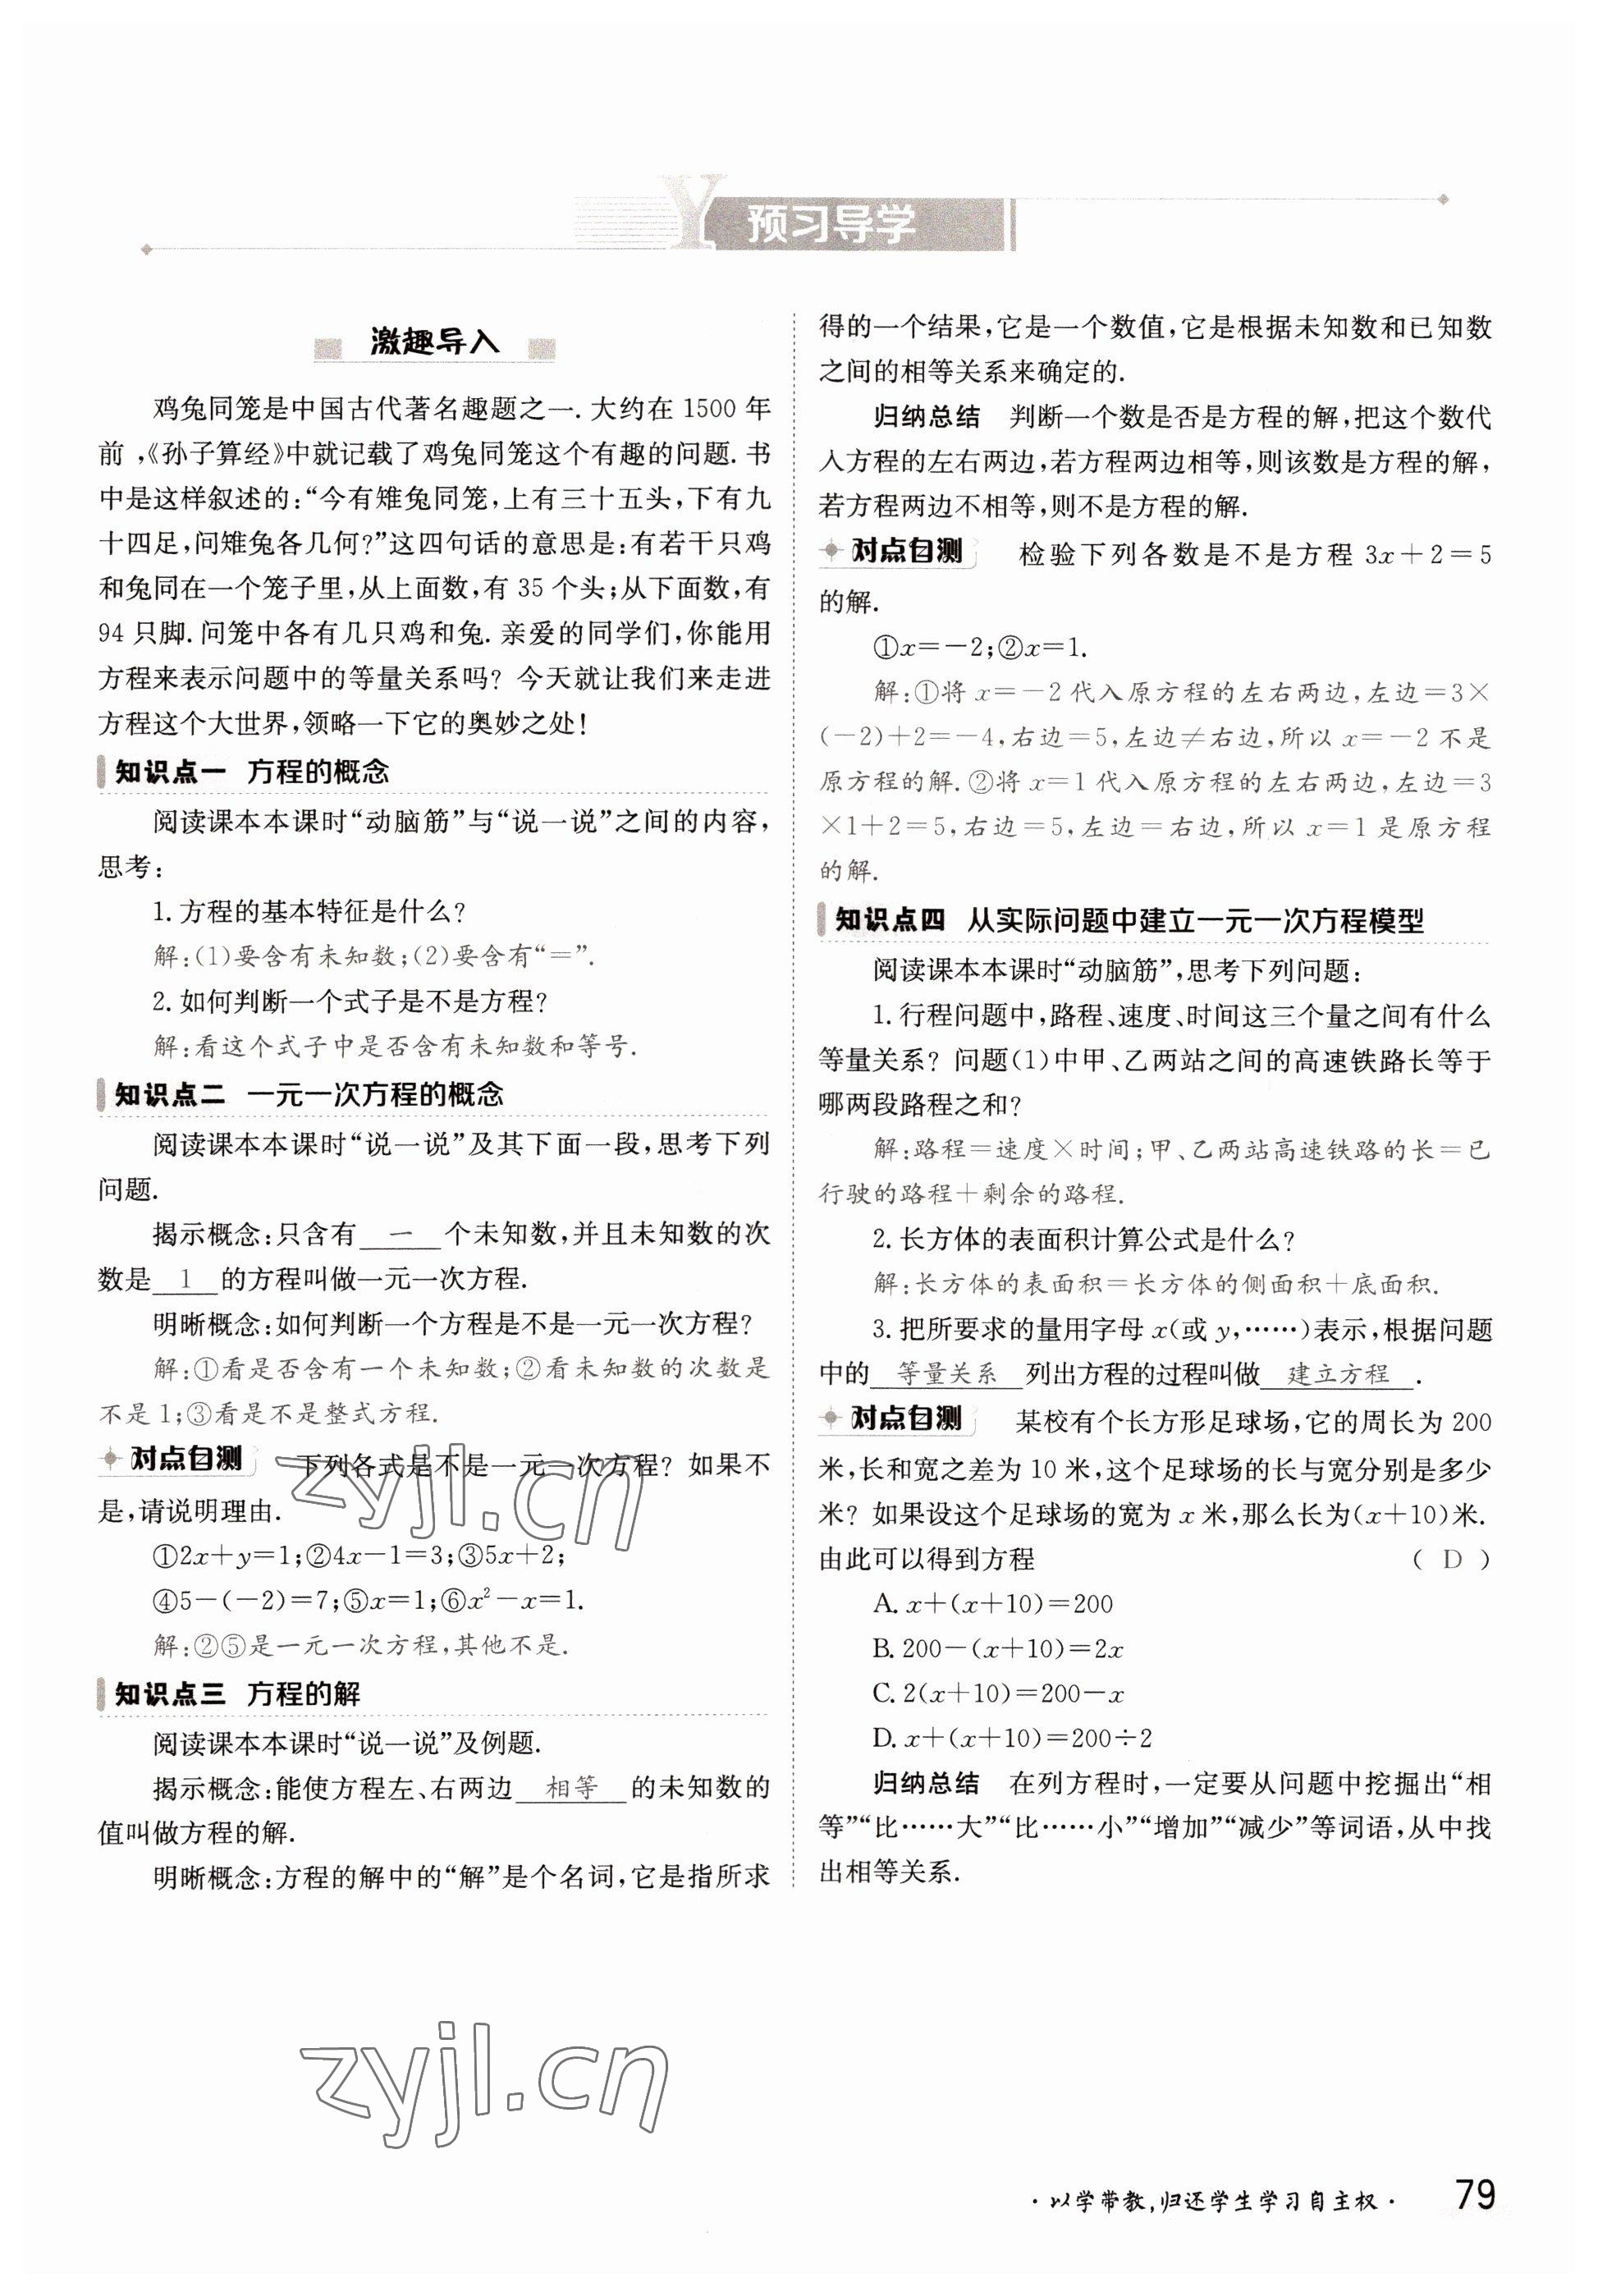 预习导学
激趣导入
鸡兔同笼是中国古代著名趣题之一. 大约在 1500 年
前 ,《孙子算经》中就记载了鸡兔同笼这个有趣的问题. 书
中是这样叙述的:“今有雉兔同笼,上有三十五头,下有九
十四足,问雉兔各几何?”这四句话的意思是:有若干只鸡
和兔同在一个笼子里,从上面数,有 35 个头;从下面数,有
94 只脚. 问笼中各有几只鸡和兔. 亲爱的同学们,你能用
方程来表示问题中的等量关系吗? 今天就让我们来走进
方程这个大世界,领略一下它的奥妙之处!
知识点一 方程的概念
阅读课本本课时“动脑筋”与“说一说”之间的内容,
思考:
1. 方程的基本特征是什么?
解:(1)要含有未知数;(2)要含有“=”.
2. 如何判断一个式子是不是方程?
解:看这个式子中是否含有未知数和等号.
知识点二 一元一次方程的概念
阅读课本本课时“说一说”及其下面一段,思考下列
问题.
揭示概念:只含有 一 个未知数,并且未知数的次
数是 1 的方程叫做一元一次方程.
明晰概念:如何判断一个方程是不是一元一次方程?
解:①看是否含有一个未知数;②看未知数的次数是
不是 1;③看是不是整式方程.
对点自测 下列各式是不是一元一次方程? 如果不
是,请说明理由.
①2x+y=1;②4x-1=3;③5x+2;
④5-(-2)=7;⑤x=1;⑥x²-x=1.
解:②⑤是一元一次方程,其他不是.
知识点三 方程的解
阅读课本本课时“说一说”及例题.
揭示概念:能使方程左、右两边 相等 的未知数的
值叫做方程的解.
明晰概念:方程的解中的“解”是个名词,它是指所求
得的一个结果,它是一个数值,它是根据未知数和已知数
之间的相等关系来确定的.
归纳总结 判断一个数是否是方程的解,把这个数代
人方程的左右两边,若方程两边相等,则该数是方程的解,
若方程两边不相等,则不是方程的解.
对点自测 检验下列各数是不是方程 3x+2=5
的解.
①x=-2;②x=1.
解:①将 x=-2 代入原方程的左右两边,左边=3×
(-2)+2=-4,右边=5,左边≠右边,所以 x=-2 不是
原方程的解. ②将 x=1 代入原方程的左右两边,左边=3
×1+2=5,右边=5,左边=右边,所以 x=1 是原方程
的解.
知识点四 从实际问题中建立一元一次方程模型
阅读课本本课时“动脑筋”,思考下列问题:
1. 行程问题中,路程、速度、时间这三个量之间有什么
等量关系? 问题(1)中甲、乙两站之间的高速铁路长等于
哪两段路程之和?
解:路程=速度×时间;甲、乙两站高速铁路的长=已
行驶的路程+剩余的路程.
2. 长方体的表面积计算公式是什么?
解:长方体的表面积=长方体的侧面积+底面积.
3. 把所要求的量用字母 x(或 y,……)表示,根据问题
中的 等量关系 列出方程的过程叫做 建立方程 .
对点自测 某校有个长方形足球场,它的周长为 200
米,长和宽之差为 10 米,这个足球场的长与宽分别是多少
米? 如果设这个足球场的宽为 x 米,那么长为(x+10)米.
由此可以得到方程 ( D )
A. x+(x+10)=200
B. 200-(x+10)=2x
C. 2(x+10)=200-x
D. x+(x+10)=200÷2
归纳总结 在列方程时,一定要从问题中挖掘出“相
等”“比……大”“比……小”“增加”“减少”等词语,从中找
出相等关系.
zyjl.cn
zyjl.cn
·以学带教,归还学生学习自主权· 79